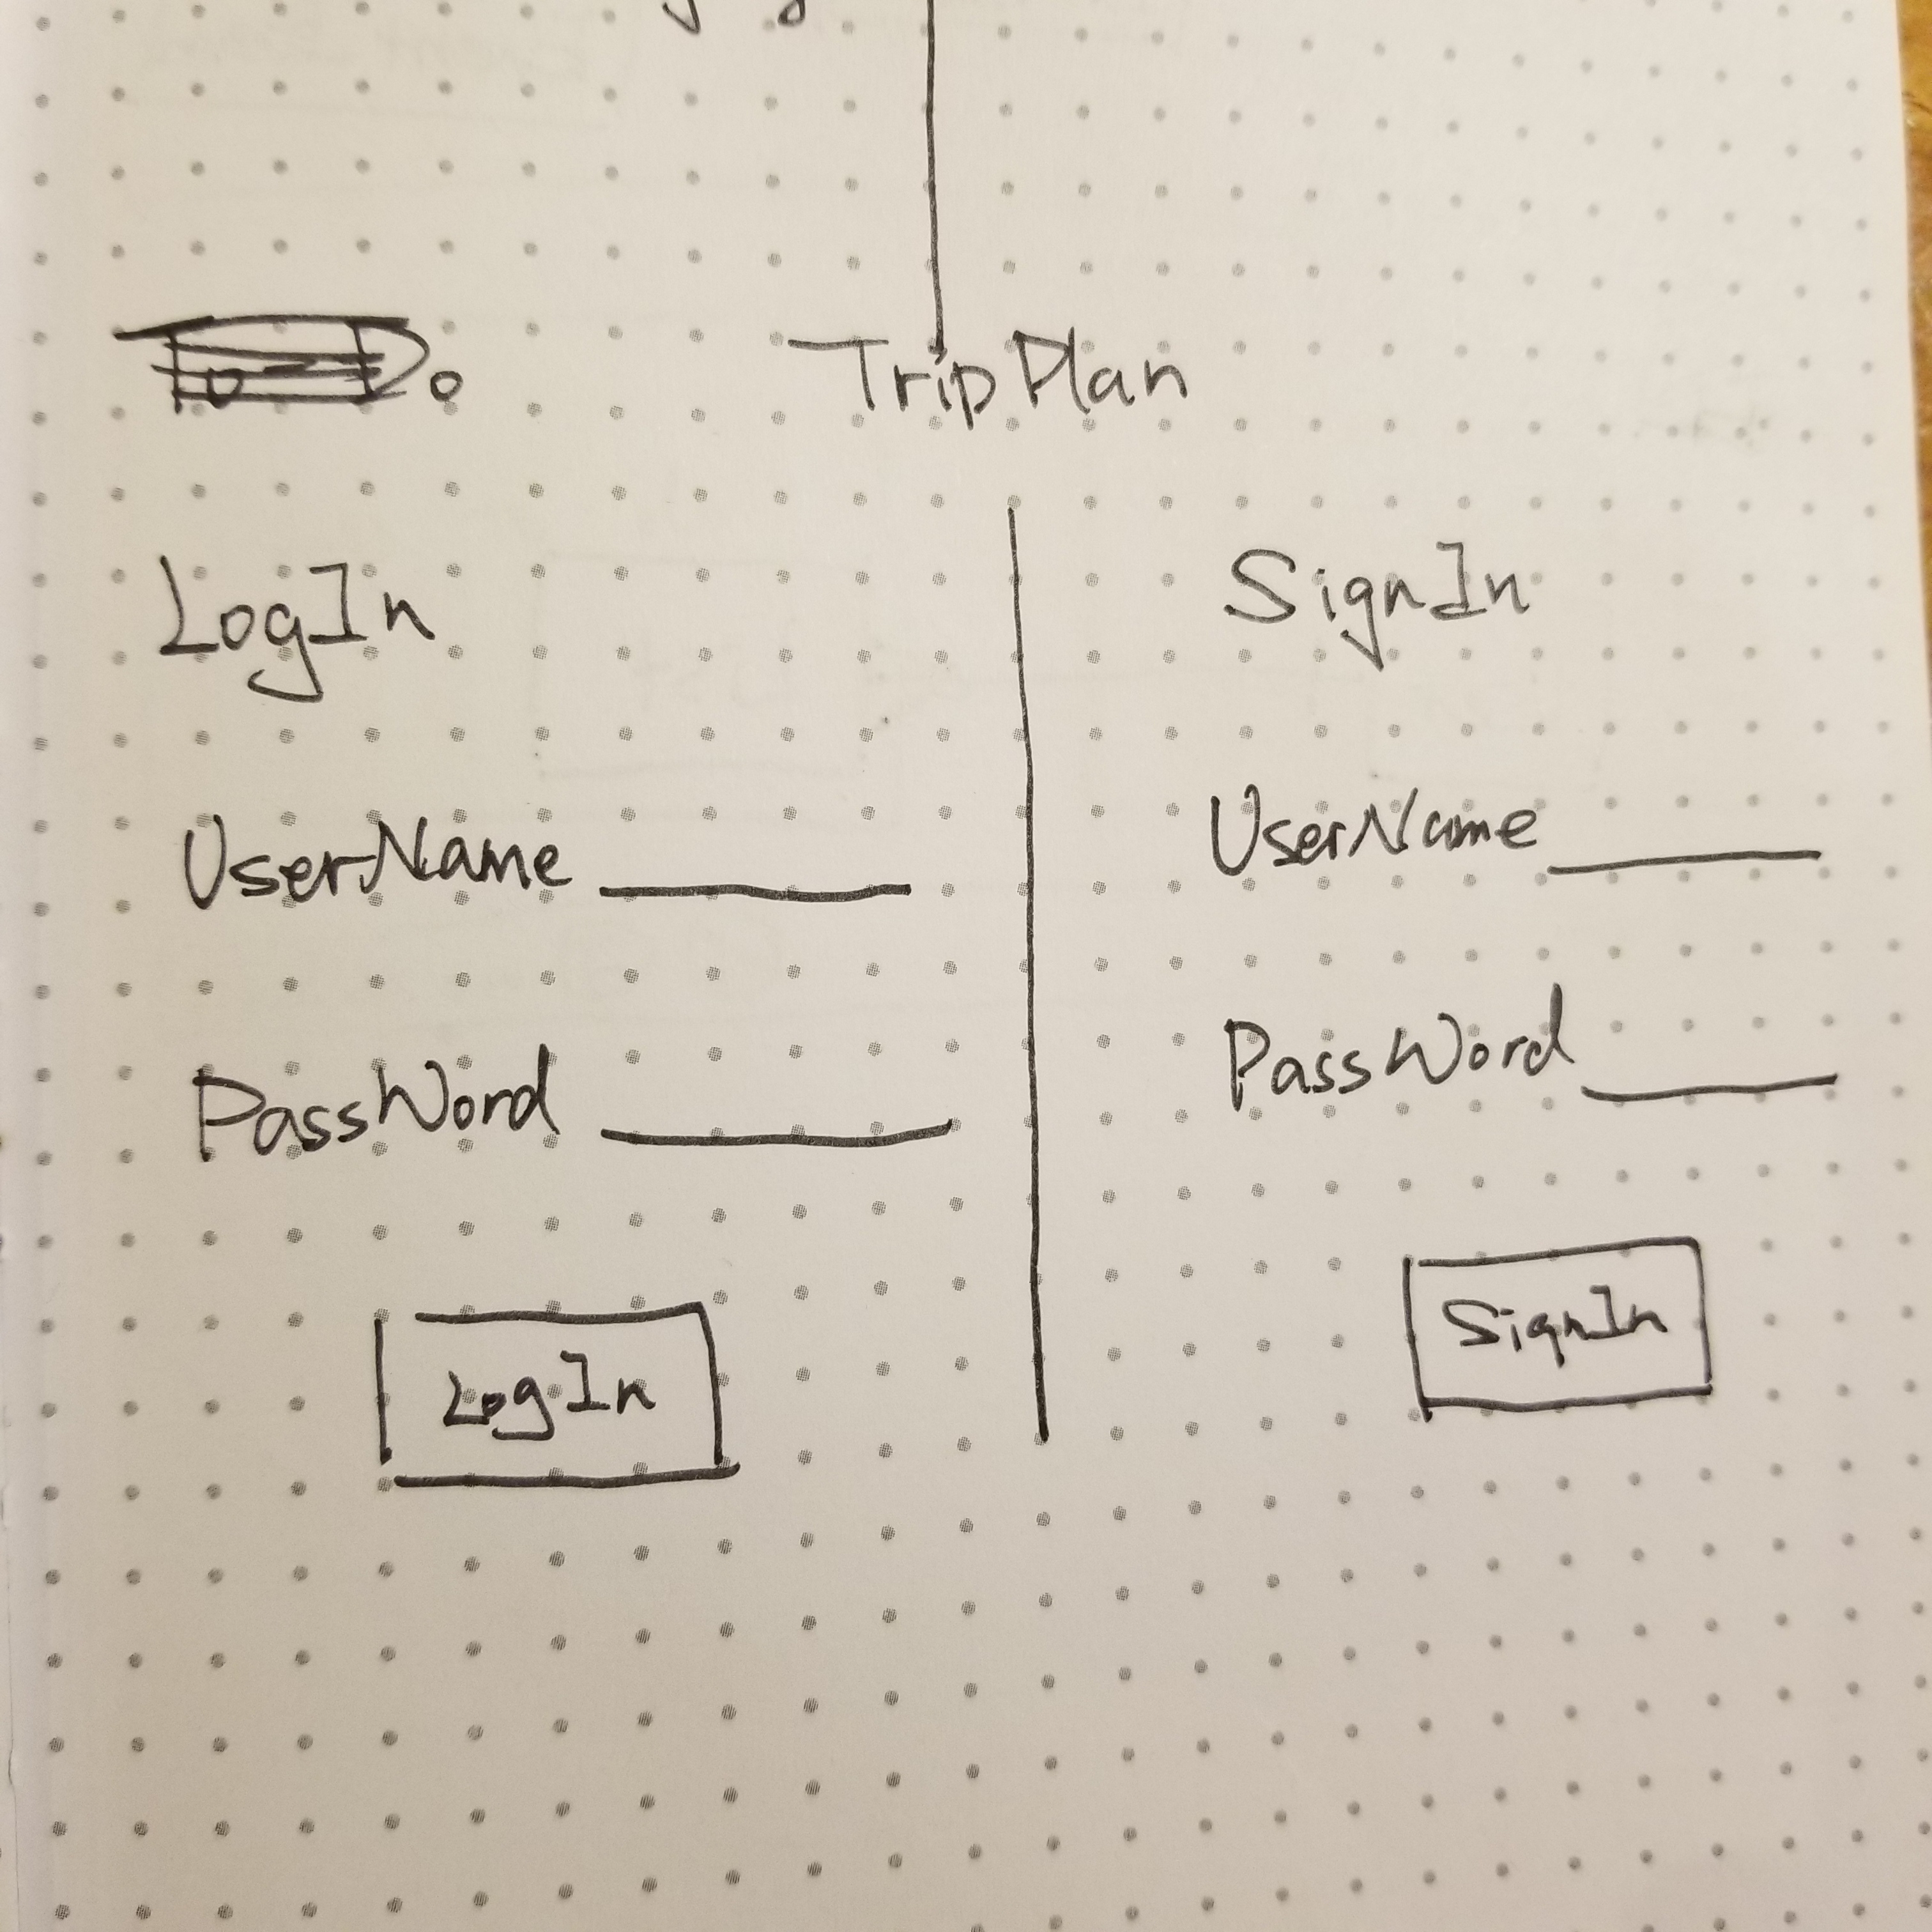 TripPlan
LogIn
UserName
PassWord
LogIn
SignIn
UserName
PassWord
SignIn